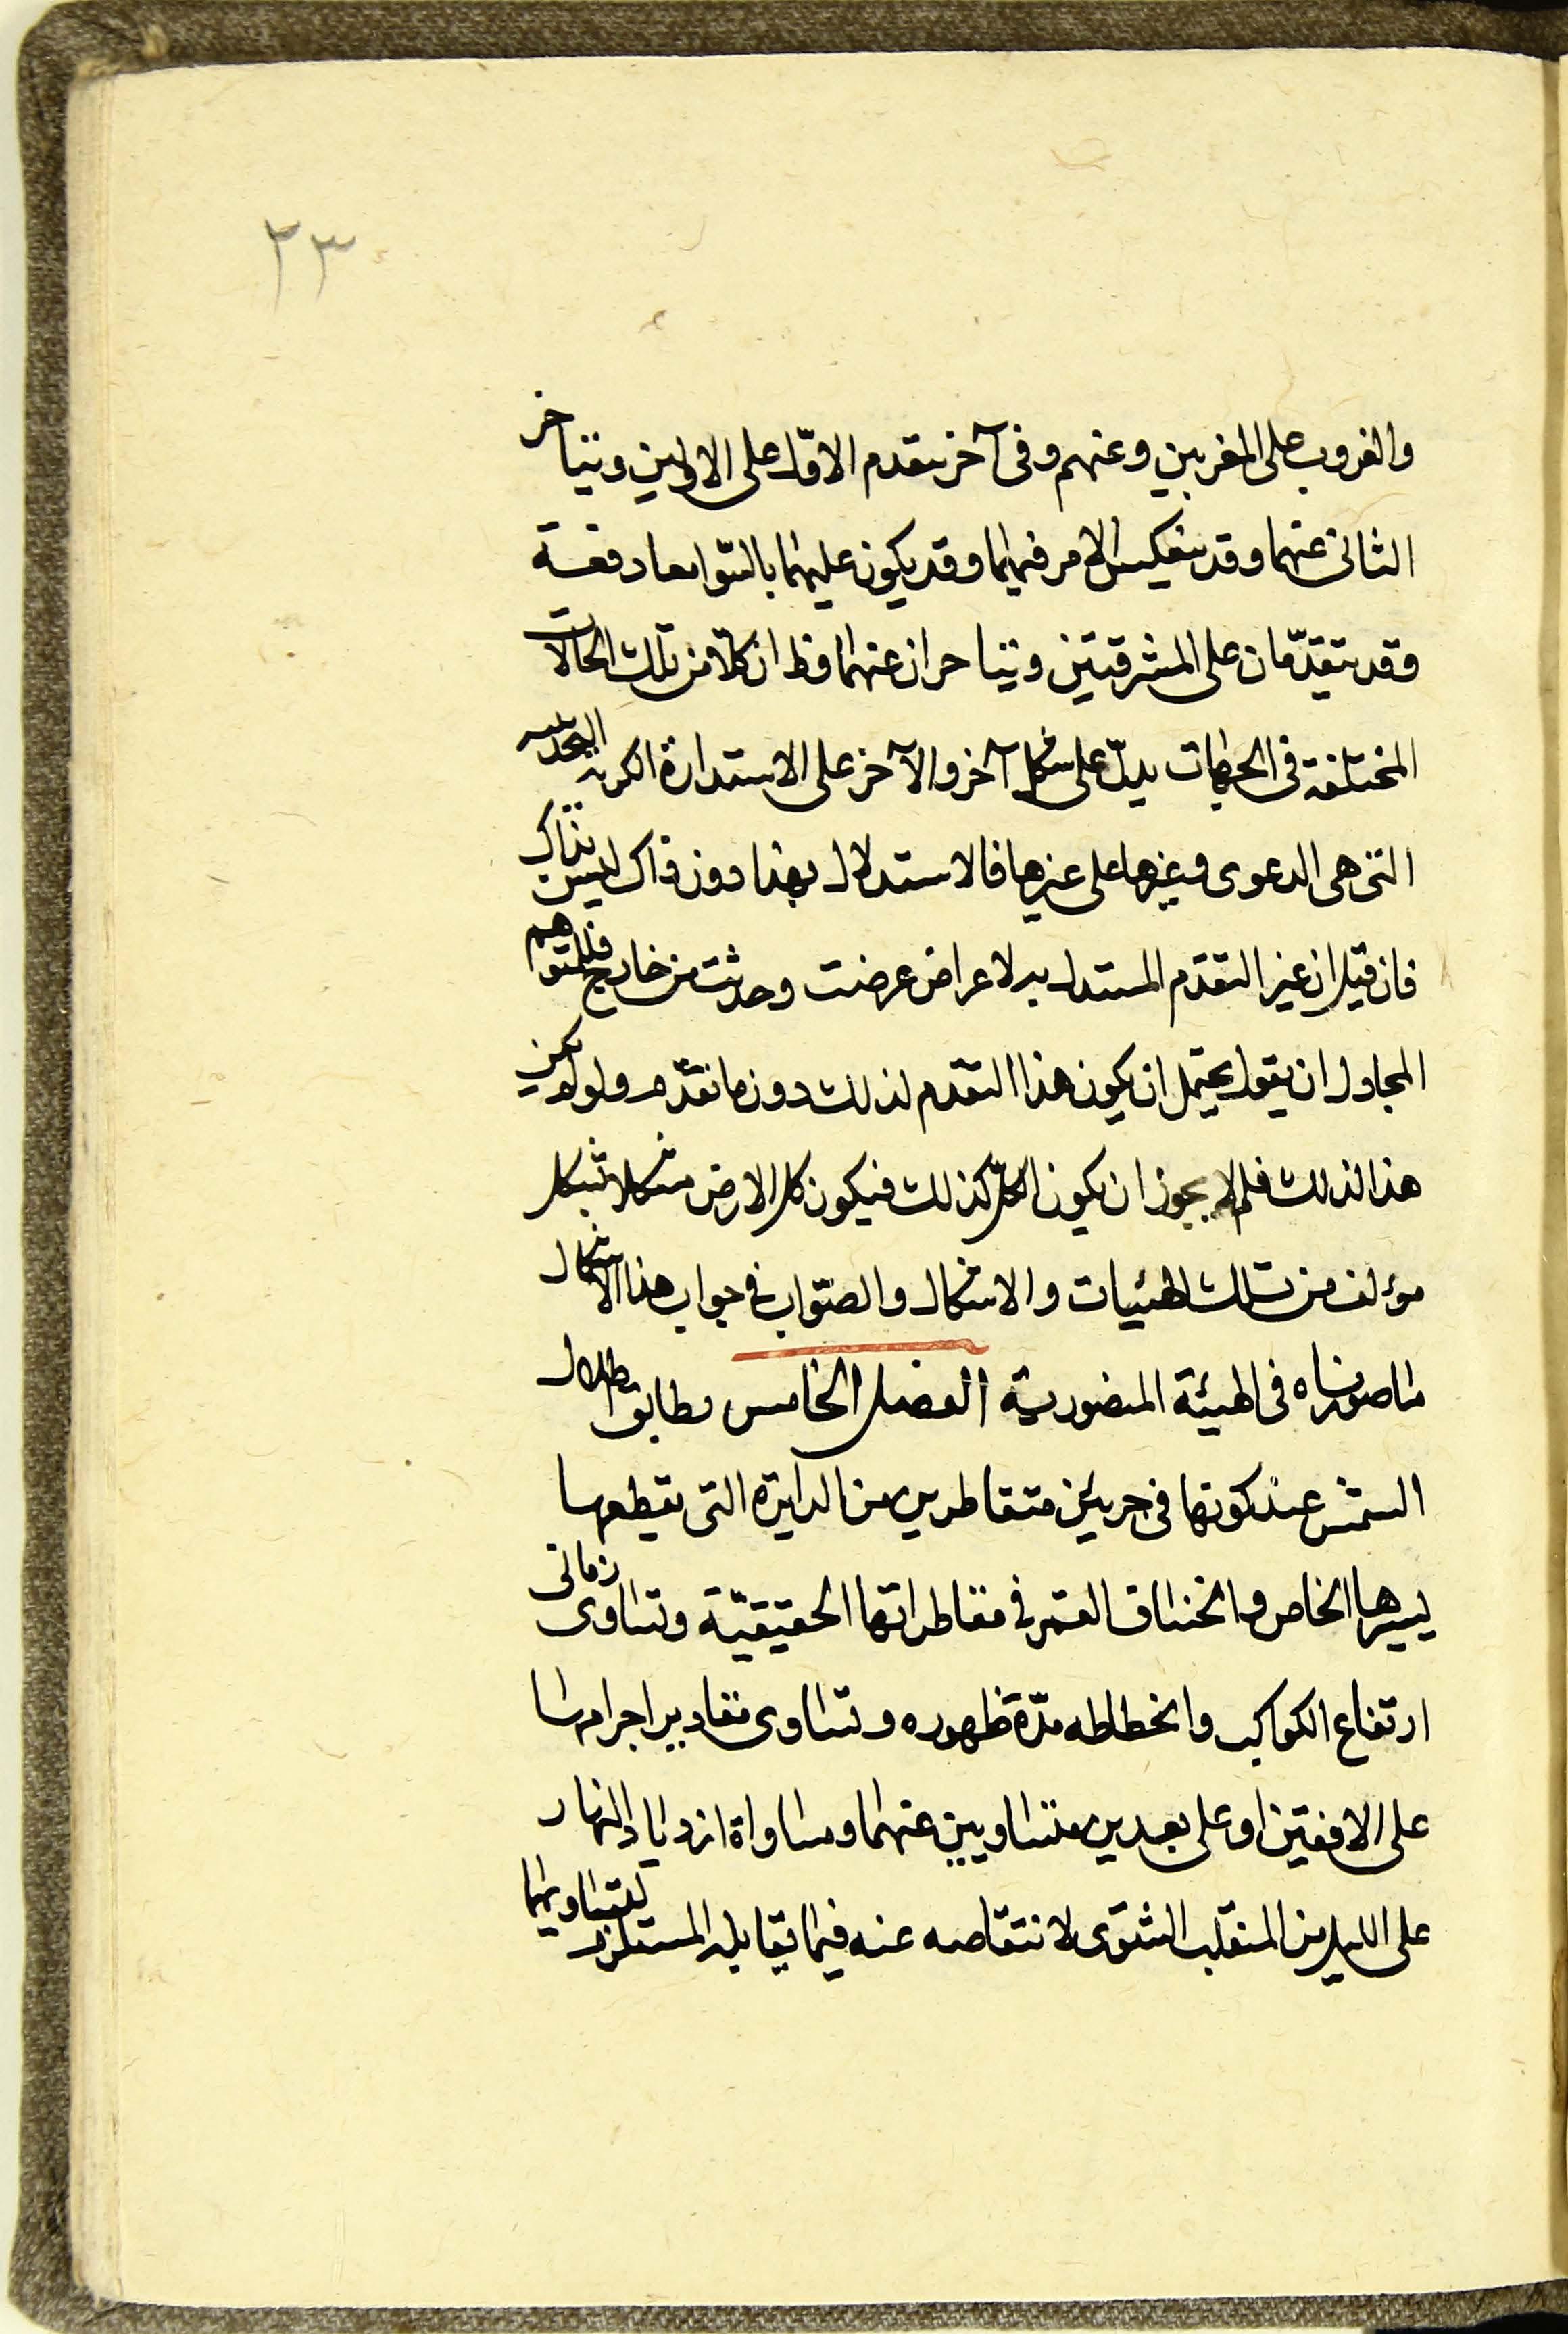 ٢٣
والغروب على المغربين وعنهم وفى آخر يتقدم الاوّل على الاولين ويتاخر
الثانى عنهما وقد ينعكس الامر فيهما وقد يكون عليهما بالسّوا معا دفعة
وقد يتقدّمان على المشرقيتين ويتاخران عنهما وظ ان كلا من تلك الحالات
المختلفة فى الجهات يدلّ على شكل آخر والآخر على الاستدارة الكرية
التى هى الدعوى وغيرها على غيرها فالاستدلال بهذا دون ذاك ليس بذاك
فان قيل ان غير التقدم المستدل به لاعراض عرضت وحدثت من خارج فللمتوهم
المجادل ان يقول يحتمل ان يكون هذا التقدم لذلك دون ما تقدّم ولو لم يكن
هذا لذلك فلم لا يجوز ان يكون الكلّ كذلك فيكون كل الارض متشكلا بشكل
مؤلف من تلك الهيئات والاشكال والصّواب فى جواب هذا الاشكال
ما صورناه فى الهيئة المنصورية الفصل الخامس تطابق اظلال
الشمس عند كونها فى جزئين متقاطرين من الدايرة التى يقطعها
بسيرها الخاص وانخساف القمر فى مقاطراتها الحقيقيّة وتساوى زمانى
ارتفاع الكواكب وانحطاطه مدّة ظهوره وتساوى مقادير اجرامها
على الافقين او على بعدين متساويين عنهما ومساواة ازدياد النهار
على الليل من المنقلب الشتوى لانتقاصه عنه فيما يقابله المستلزم لتساويهما